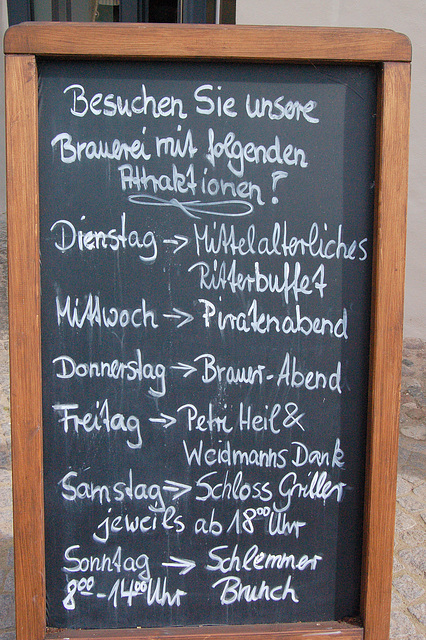 Besuchen Sie unsere
Brauerei mit folgenden
Attraktionen!
Dienstag → Mittelalterliches
Ritterbuffet
Mittwoch → Piratenabend
Donnerstag → Brauer-Abend
Freitag → Petri Heil &
Weidmanns Dank
Samstag → Schloss Griller
jeweils ab 18⁰⁰ Uhr
Sonntag → Schlemmer
8⁰⁰-14⁰⁰ Uhr Brunch